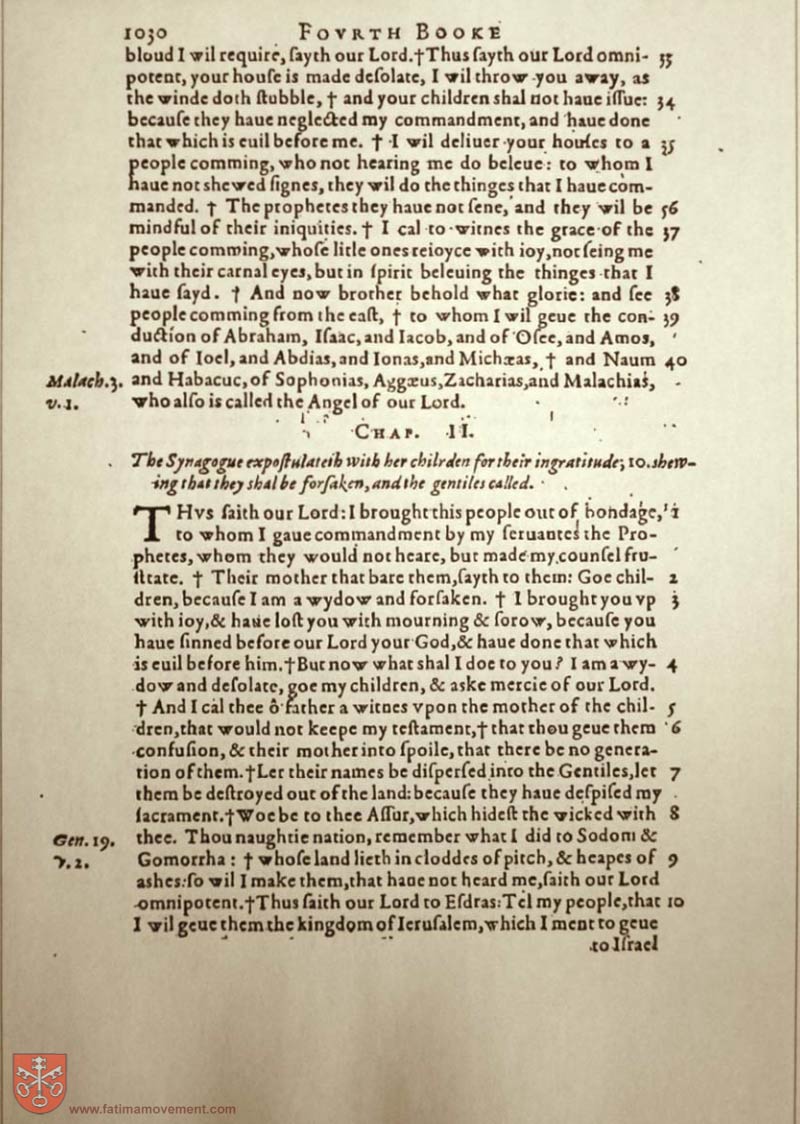 1030 FOVRTH BOOKE
bloud I wil require, ſayth our Lord.†Thus ſayth our Lord omni- 33
potent, your houſe is made deſolate, I wil throw you away, as
the winde doth ſtubble, † and your children shal not haue iſſue: 34
becauſe they haue neglected my commandment, and haue done
that which is euil before me. † I wil deliuer your houſes to a 35
people comming, who not hearing me do beleue: to whom I
haue not shewed ſignes, they wil do the thinges that I haue com-
manded. † The prophetes they haue not ſene, and they wil be 36
mindful of their iniquities. † I cal to witnes the grace of the 37
people comming, whoſe litle ones reioyce with ioy, not ſeing me
with their carnal eyes, but in ſpirit beleuing the thinges that I
haue ſayd. † And now brother behold what glorie: and ſee 38
people comming from the eaſt, † to whom I wil geue the con- 39
duction of Abraham, Iſaac, and Iacob, and of Oſee, and Amos,
and of Ioel, and Abdias, and Ionas, and Michæas, † and Naum 40
Malach.3. and Habacuc, of Sophonias, Aggæus, Zacharias, and Malachias,
v.1. who alſo is called the Angel of our Lord.
CHAP. II.
The Synagogue expoſtulateth with her chilrden for their ingratitude; 10. shew-
ing that they shal be forſaken, and the gentiles called.
THVS ſaith our Lord: I brought this people out of bondage, 1
to whom I gaue commandment by my ſeruantes the Pro-
phetes, whom they would not heare, but made my counſel fru-
ſtrate. † Their mother that bare them, ſayth to them: Goe chil- 2
dren, becauſe I am a wydow and forſaken. † I brought you vp 3
with ioy, & haue loſt you with mourning & ſorow, becauſe you
haue ſinned before our Lord your God, & haue done that which
is euil before him.†But now what shal I doe to you? I am a wy- 4
dow and deſolate, goe my children, & aske mercie of our Lord.
† And I cal thee ô father a witnes vpon the mother of the chil- 5
dren, that would not keepe my teſtament, † that thou geue them 6
confuſion, & their mother into ſpoile, that there be no genera-
tion of them.†Let their names be diſperſed into the Gentiles, let 7
them be deſtroyed out of the land: becauſe they haue deſpiſed my
ſacrament.†Woe be to thee Aſſur, which hideſt the wicked with 8
Gen.19. thee. Thou naughtie nation, remember what I did to Sodom &
v.2. Gomorrha: † whoſe land lieth in cloddes of pitch, & heapes of 9
ashes: ſo wil I make them, that haue not heard me, ſaith our Lord
omnipotent.†Thus ſaith our Lord to Eſdras: Tel my people, that 10
I wil geue them the kingdom of Ieruſalem, which I ment to geue
to Iſrael
www.fatimamovement.com